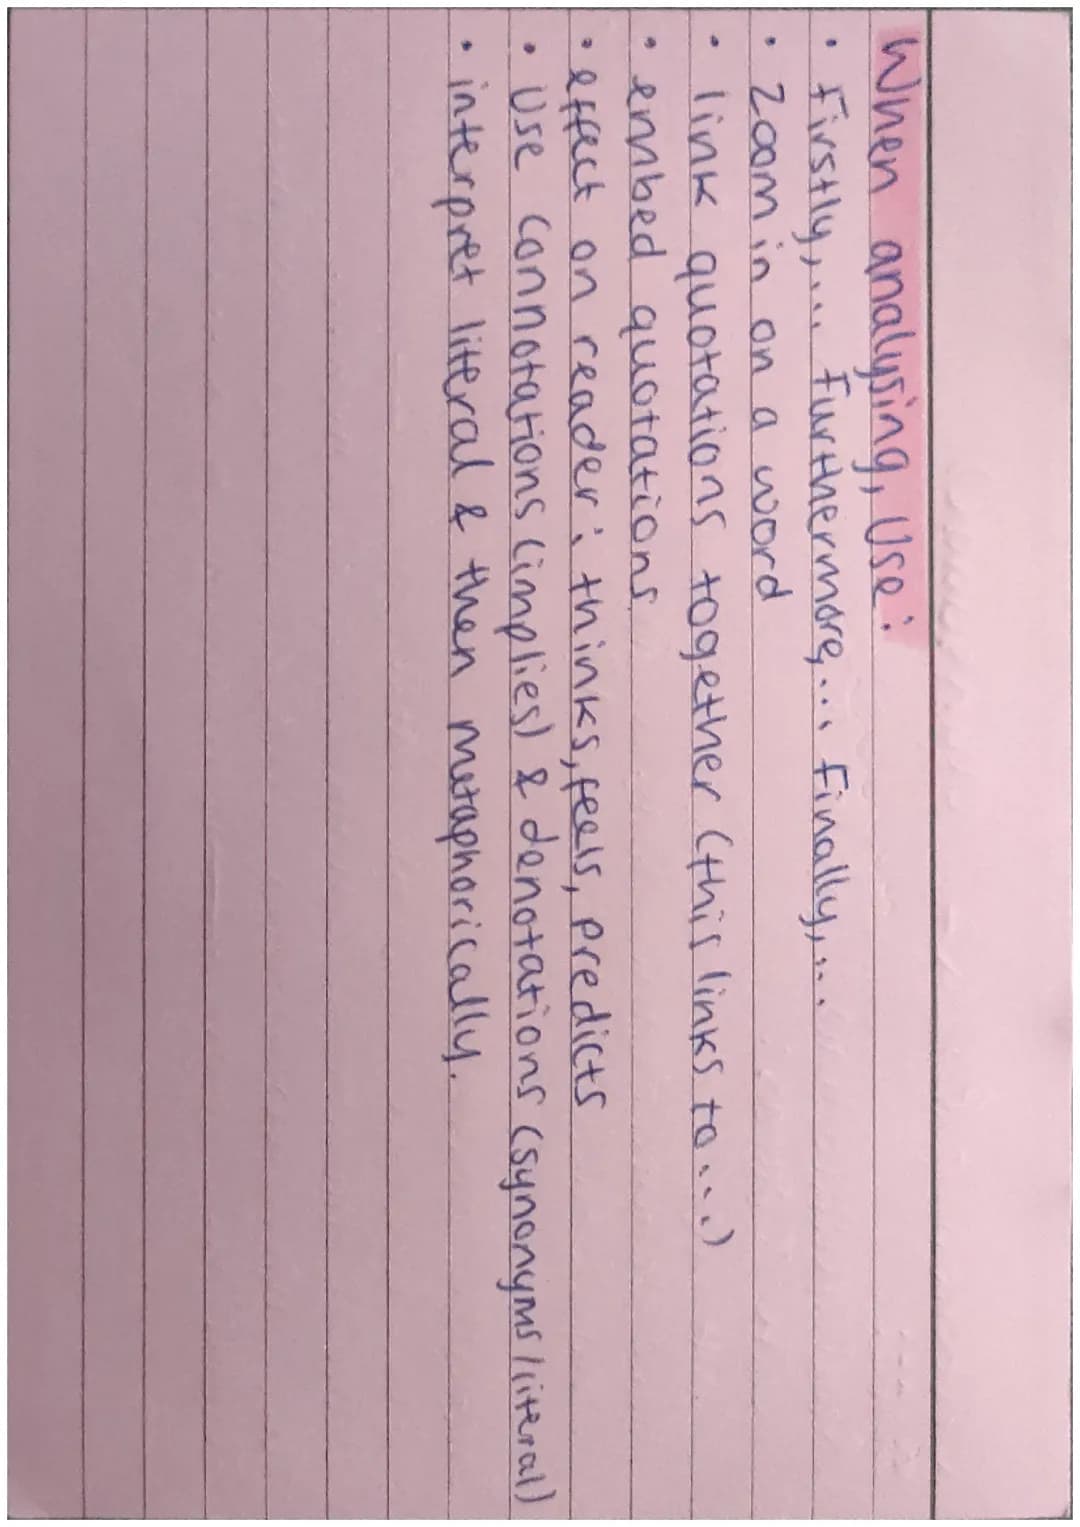 When analysing, Use:
• Firstly,... Furthermore,... Finally,...
• Zoom in on a word
• link quotations together (this links to...)
• embed quotations
• effect on reader: thinks, feels, predicts
• Use connotations (implies) & denotations (synonyms/literal)
• interpret literal & then metaphorically.